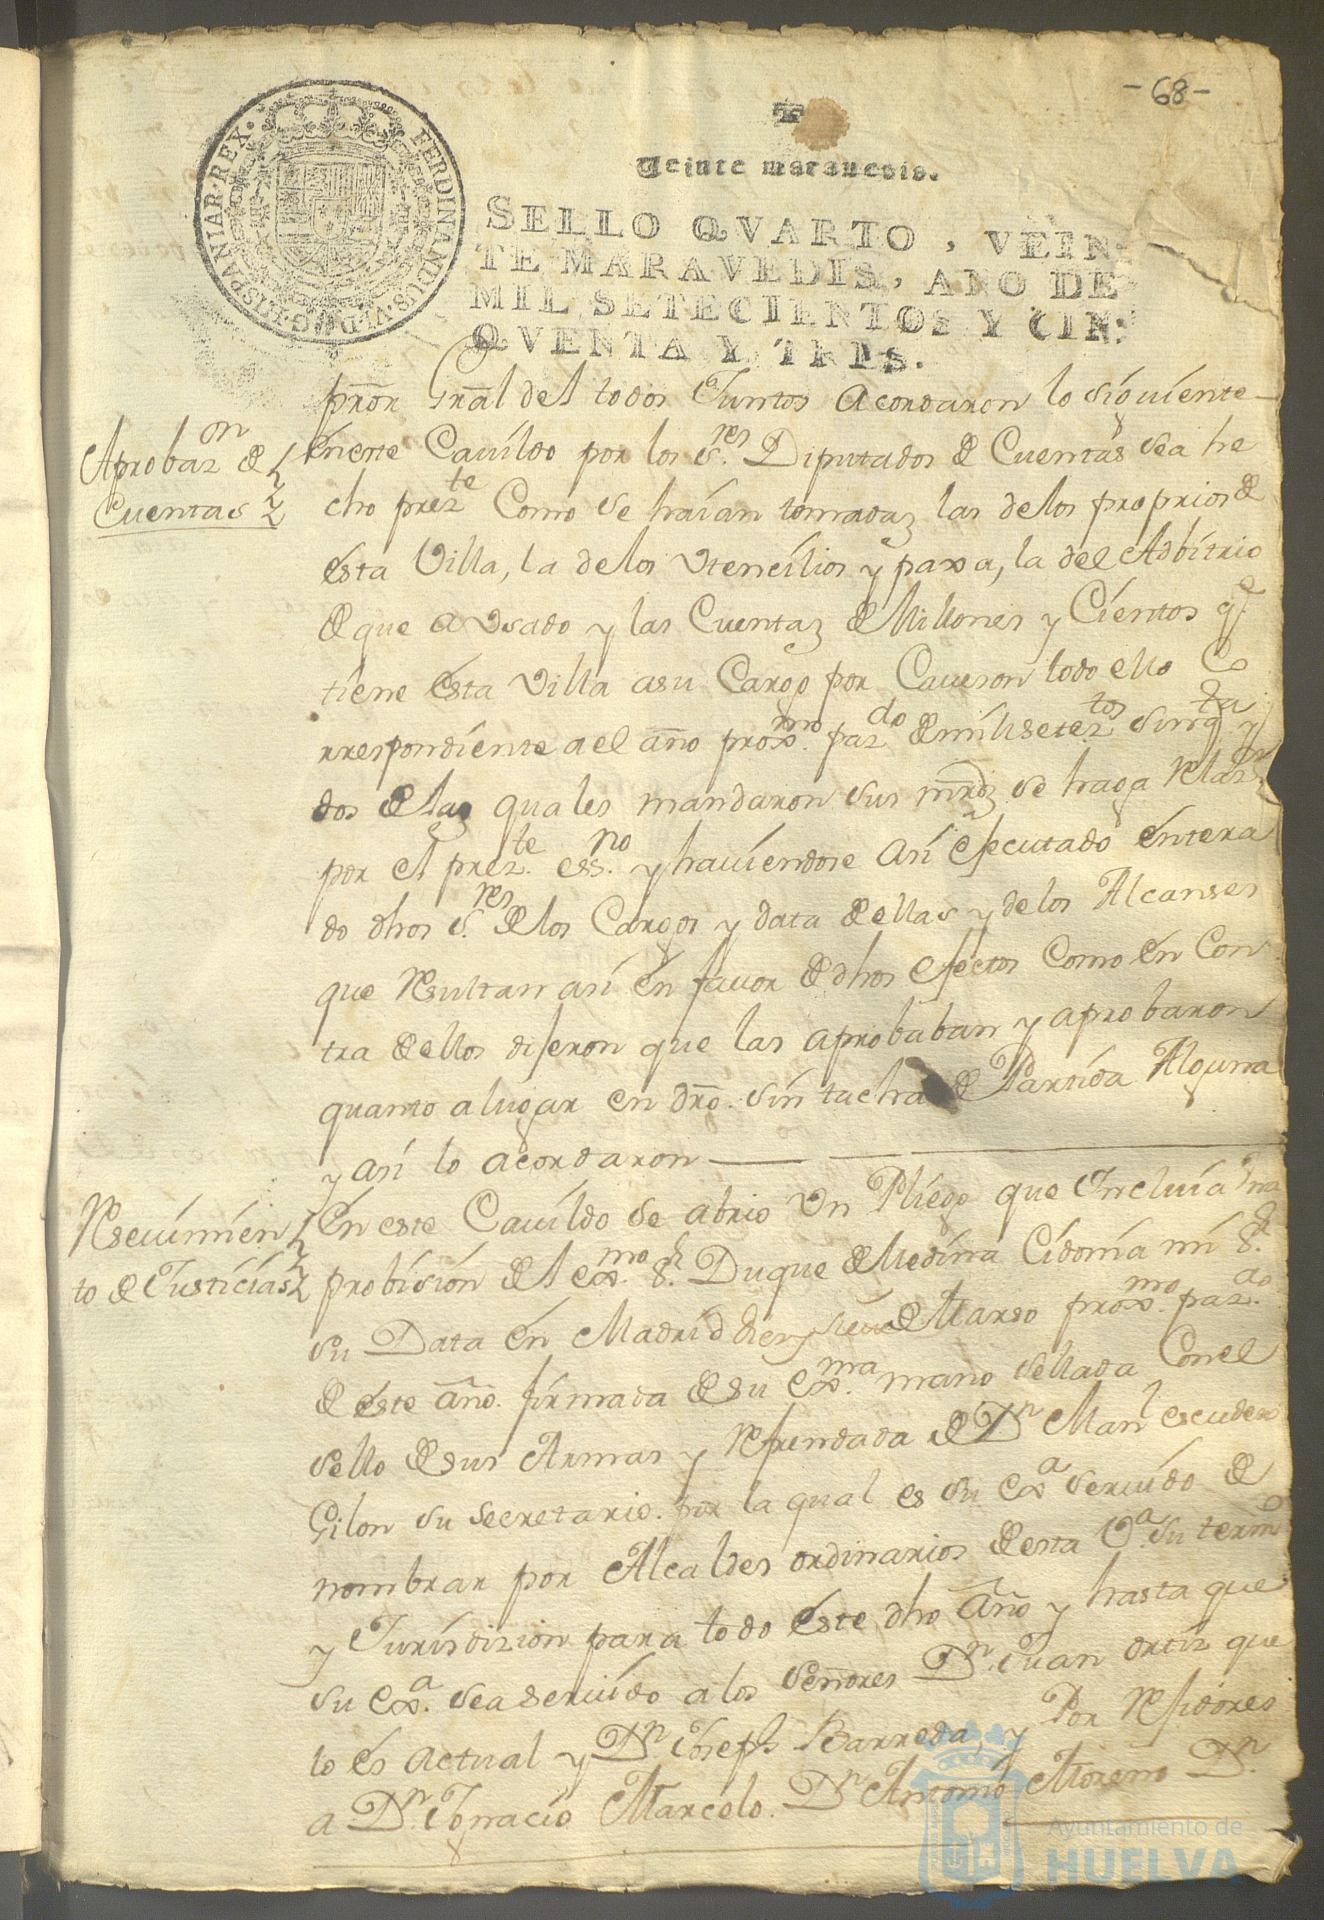 -68-
FERDINANDUS·VI·D·G·HISPANIAR·REX·
Veinte marauedis.
SELLO QVARTO, VEIN-
TE MARAVEDIS, AÑO DE
MIL SETECIENTOS Y CIN-
QVENTA Y TRES.
prõr Grãl del todos Juntos Acordaron lo siguiente
Aprobazon de
Cuentas
Eneste Cauildo por los Sres. Diputados de Cuentas sea he
cho prezte Como se hauian tomadas las delos proprios de
esta Villa, la delos Vtencilios y paxa, la del Adbitrio
de que a Vsado y las Cuentas de Millones y Cientos qe
tiene esta Villa asu Cargo por Caueson todo ello Co
rrespondiente a el año proxmo. pazdo de mill seteztos sinqta y
dos de las quales mandaron sus mrds se haga Relazon
por el prezte. essno. y hauiendose Asi efecutado entera
do dhos Sres. de los Cargos y data de ellas y delos Alcanses
que Resultan asi en fauor de dhos efectos Como en Con
tra de ellos dijeron que las aprobaban y aprobaron
quanto a lugar en dro. sin tacha de Partida Alguna
y asi lo acordaron
Reseuimien
to de Justicias
En este Cauildo se abrio Vn Pliego que Incluia Vna
probision de el exmo. Sr. Duque de Medina Cidonia mi Sr.
su Data en Madrid diez y siete de Marso proxmo. pazdo.
de este año. firmada de su Exma. mano sellada Conel
sello de sus Armas y Refrendada de Dn Manl escudero
Gilon su secretario. por la qual es su Exa seruido de
nombrar por Alcaldes ordinarios de esta Va. su termo
y Jurisdizion para todo este dho Año y hasta que
su Exa. sea seruido a los señores Dn. Juan ortiz que
lo es actual y Dn Joseph Barreda, y Por Refidores
a Dn. Ignacio Marcelo. Dn Antonio Moreno Dn.
Ayuntamiento de
HUELVA